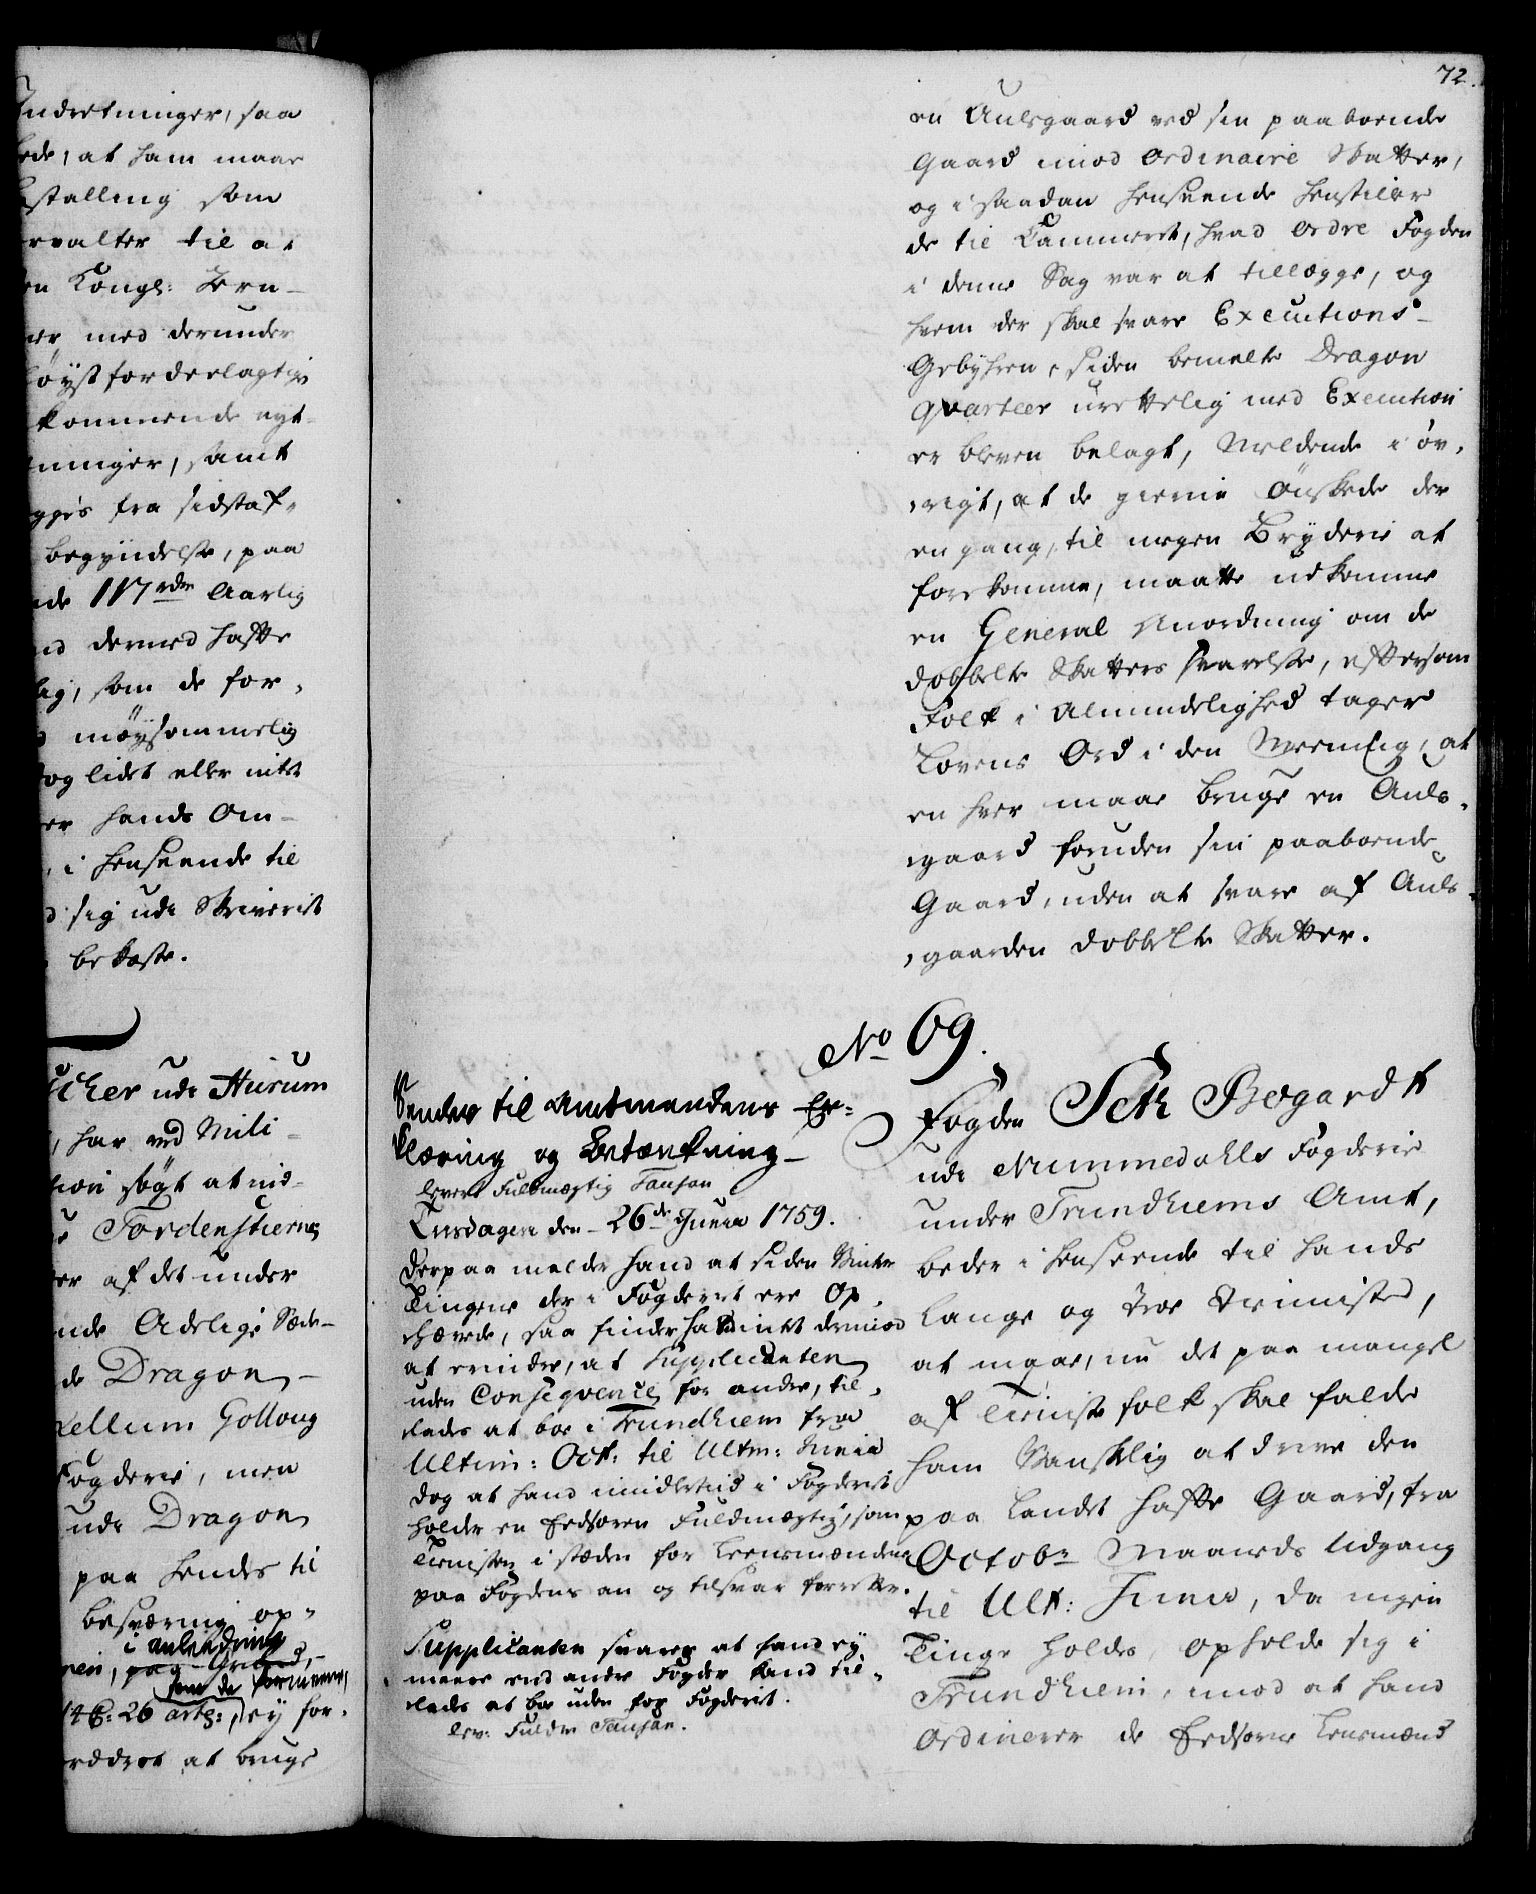 Indretninger, saa
bede, at ham maae
stalling som
rvalter til at
en Kongl: Jern-
er med derunder
öyst fordeelagtige
kommende nyt-
ninger, samt
gges fra sidst af-
begyndelse, paa
nde 117 rdr Aarlig
nd dermed hafte
lig, som de for-
møysommelig
og lidet eller intet
er hands Om-
i henseende til
d sig udi Skriveriet
bekoste.
cher udi Hurum
, har ved Mili-
tion søgt at nid-
e Tordenstierne
er af det under
nde Adelige Sæde-
de Dragon-
Kellum Gollaug
Fogderie, men
udi Dragon
paa hendes til
besværing op-
i anledning
nen, paa Grund,
som de formener,
14 C: 26 art:, ey for-
rædret at bruge
72.
en Aulsgaard ved sin paaboende
Gaard imod Ordinaire Skatter,
og i saadan henseende henstiller
de til Cammeret, hvad Ordre Fogden
i denne Sag var at tillægge, og
hvem der skal svare Executions-
Gebyhren, siden bemelte Dragon
Qvarteer urettelig med Execution
er bleven belagt, Meldende i öv-
rigt, at de gierne Ønskede der
engang, til megen Bryderie at
forekomme, maatte udkomme
en General Anordning om de
dobbelte Skatters Svarelse, eftersom
Folk i Almindelighed tager
Lovens Ord i den Meening, at
en hver maae bruge en Auls-
gaard foruden sin paaboende
Gaard, uden at svare af Auls-
gaarden dobbelte Skatter.
No 69.
Sendes til Amtmandens Er-
klæring og Betænkning-
leveret Fuldmægtig Fanøan
Tirsdagen den 26de Junii 1759.
Derpaa melder hand at siden Vinter
Tingene der i Fogderiet ere Op-
hævede, saa finder hand intet derimod
at erindre, at Supplicanten
uden Conseqvence for andre, til-
lades at boe i Trundhiem fra
Ultim: Oct: til Ultm: Junii
dog at hand imidlertid i Fogderiet
holder en Eedsoren Fuldmægtig, som
Tienisten i stæden for Leensmændene
paa Fogdens an og tilsvar forretter.
Supplicanten svares at hand ey
meere end andre Fogder kand til-
lades at boe uden for Fogderiet.
lev: Fuldm Fanøan.
Fogden Seth Bogardt
udi Nummedahls Fogderie
under Trundhiems Amt,
beder i henseende til hands
lange og troe Tieniste,
at maae, nu det paa mangel
af Tieniste folk skal falde
ham Vanskelig at drive den
paa Landet hafte Gaard, fra
Octobr Maaneds Udgang
til Ult: Junii, da ingen
Tinge holdes, opholde sig i
Trundhiem, imod at hand
Ordinerer de Eedsorne Lensmænd